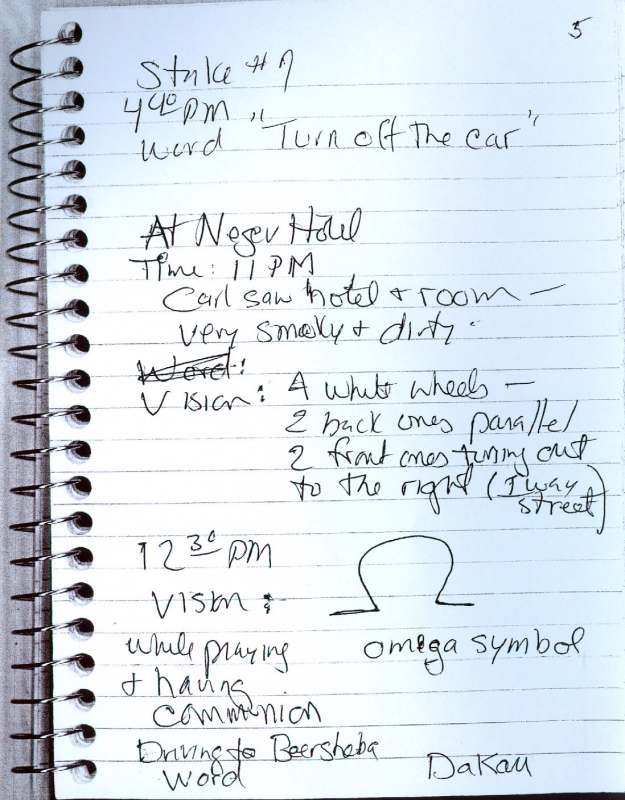 5
Stake #7
4 40 PM "
word "Turn off the car"
At Negev Hotel
Time: 11 PM
Carl saw hotel + room —
very smoky + dirty.
Word:
Vision: 4 white wheels —
2 back ones parallel
2 front ones turning out
to the right (1 way
street)
12 30 PM
Vision:
omega symbol
while praying
+ having
communion
Driving to Beersheba
Word